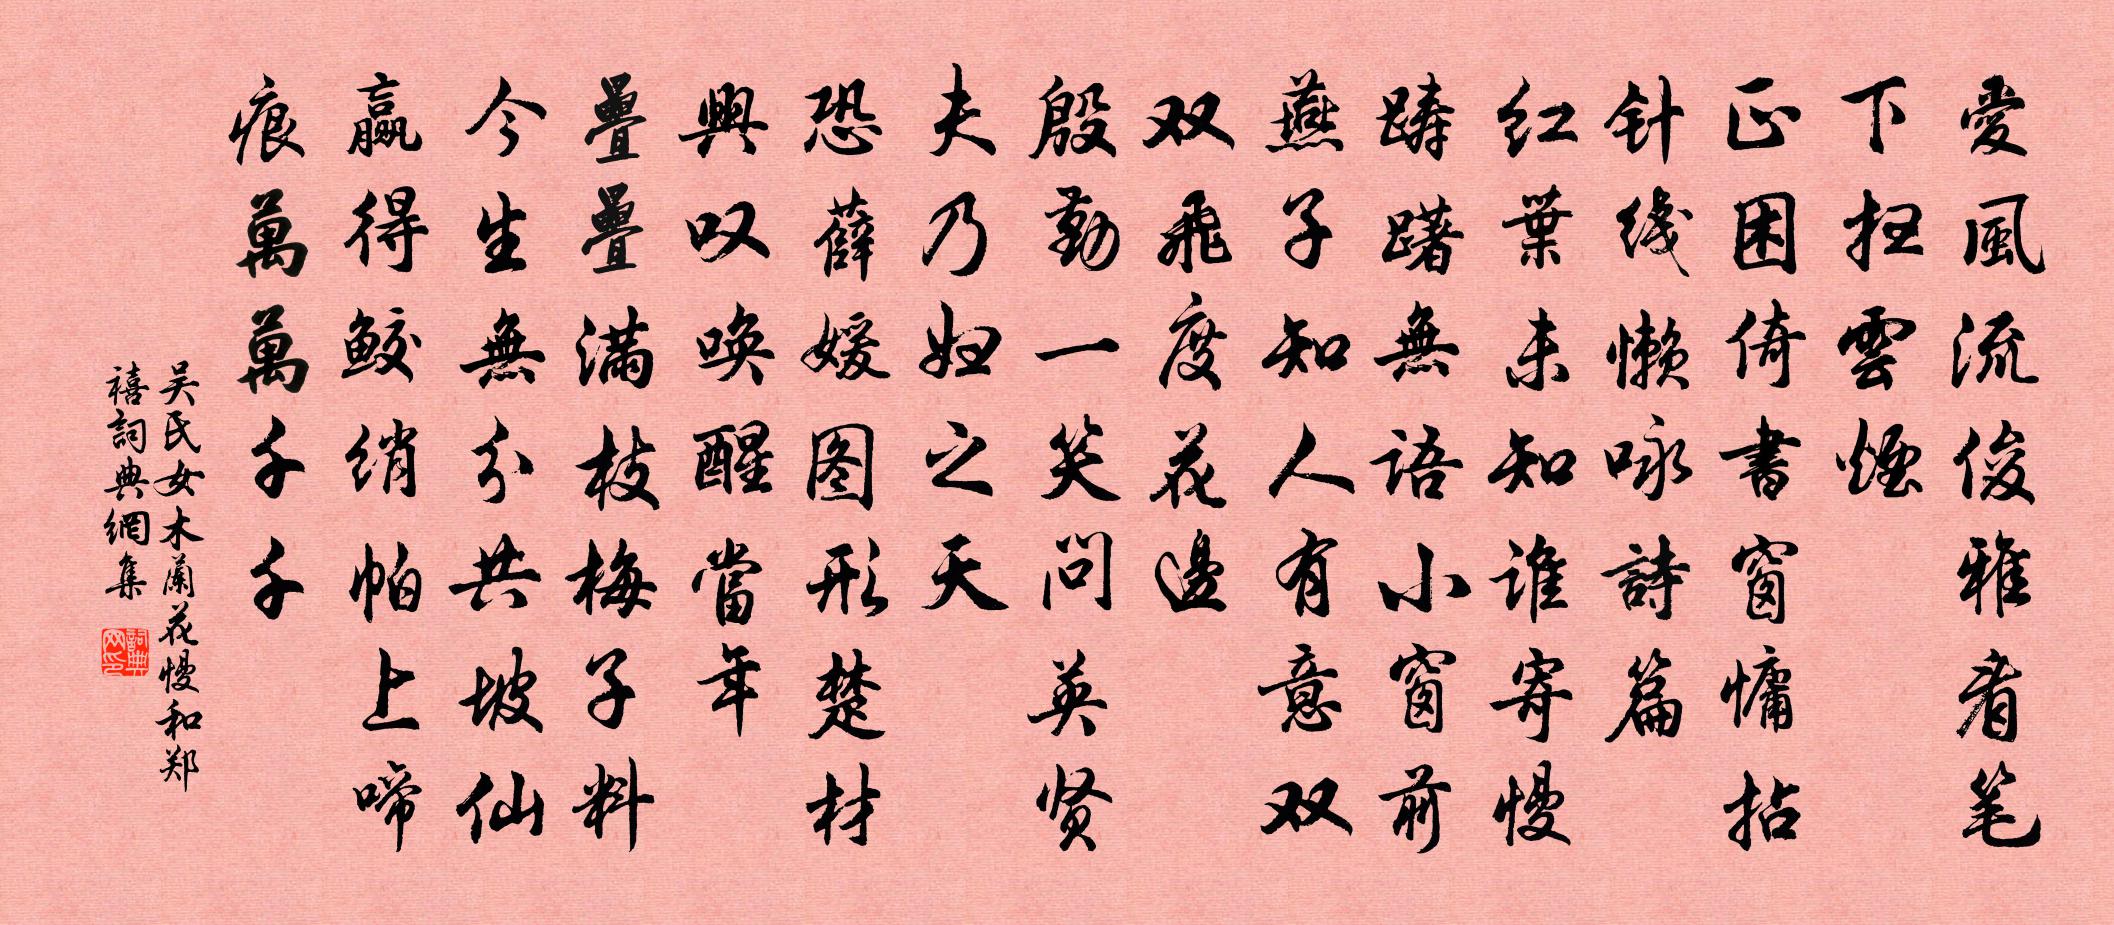 愛風流俊雅看笔
下扫雲煙
正困倚書窗慵拈
针线懒咏詩篇
红葉未知谁寄慢
踌躇無语小窗前
燕子知人有意双
双飛度花邊
殷勤一笑问英贤
夫乃妇之天
恐薛媛图形楚材
興叹唤醒當年
疊疊满枝梅子料
今生無分共坡仙
赢得鲛绡帕上啼
痕萬萬千千
吴氏女木蘭花慢和郑
禧詞典網集
詞典网印